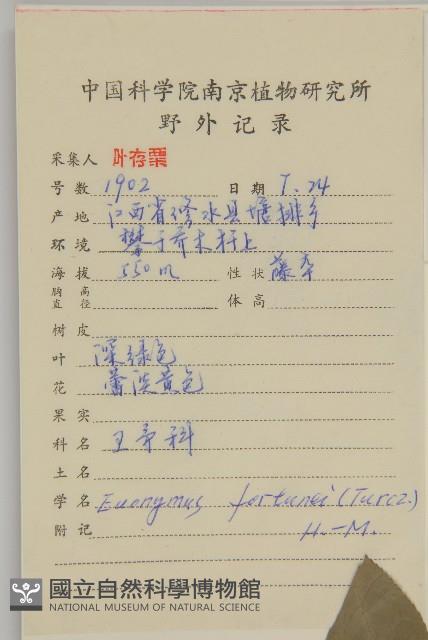 中国科学院南京植物研究所
野外记录
采集人 叶存粟
号数 1902 日期 7.24
产地 江西省修水县塘排乡
环境 攀于乔木杆上
海拔 550m 性状 藤本
胸高直径 体高
树皮
叶 深绿色
花 蕾淡黄色
果实
科名 卫矛科
土名
学名 Euonymus fortunei (Turcz.)
附记 H.-M.
國立自然科學博物館
NATIONAL MUSEUM OF NATURAL SCIENCE